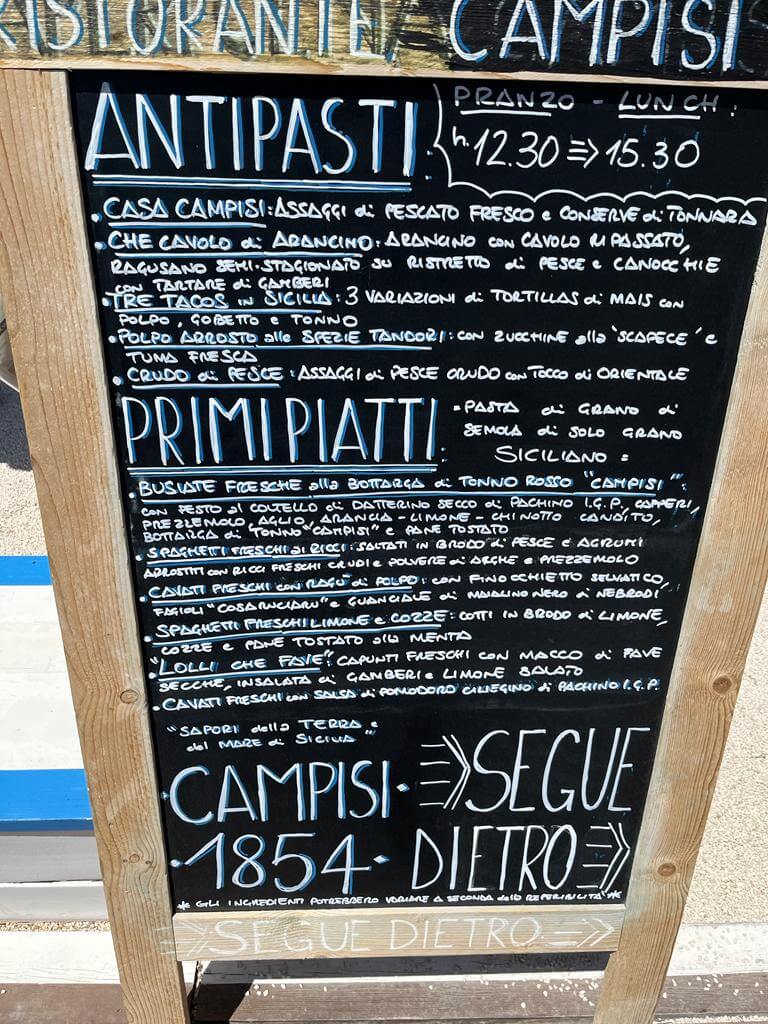 RISTORANTE CAMPISI
ANTIPASTI:
PRANZO - LUNCH:
h. 12.30 => 15.30
• CASA CAMPISI: ASSAGGI di PESCATO FRESCO e CONSERVE di TONNARA
• CHE CAVOLO di ARANCINO: ARANCINO con CAVOLO RIPASSATO,
RAGUSANO SEMI-STAGIONATO SU RISTRETTO di PESCE E CANOCCHIE
con TARTARE di GAMBERI
• TRE TACOS in SICILIA: 3 VARIAZIONI di TORTILLAS di MAIS con
POLPO, GOBETTO e TONNO
• POLPO ARROSTO alle SPEZIE TANDORI: con ZUCCHINE alla 'SCAPECE' e
TUMA FRESCA
• CRUDO di PESCE: ASSAGGI di PESCE CRUDO con TOCCO di ORIENTALE
PRIMI PIATTI:
= PASTA di GRANO di
SEMOLA di SOLO GRANO
SICILIANO =
• BUSIATE FRESCHE alla BOTTARGA di TONNO ROSSO "CAMPISI":
con PESTO al COLTELLO di DATTERINO SECCO di PACHINO I.G.P., CAPPERI,
PREZZEMOLO, AGLIO, ARANCIA - LIMONE - CHINOTTO CANDITO,
BOTTARGA di TONNO "CAMPISI" e PANE TOSTATO
• SPAGHETTI FRESCHI ai RICCI: SALTATI IN BRODO di PESCE e AGRUMI
ARROSTITI con RICCI FRESCHI CRUDI e POLVERE di ALGHE e PREZZEMOLO
• CAVATI FRESCHI con RAGÙ di POLPO: con FINOCCHIETTO SELVATICO,
FAGIOLI "COSARUCIARU" e GUANCIALE di MAIALINO NERO di NEBRODI
• SPAGHETTI FRESCHI LIMONE e COZZE: COTTI IN BRODO di LIMONE,
COZZE e PANE TOSTATO alla MENTA
• "LOLLI CHE FAVE": CAPUNTI FRESCHI con MACCO di FAVE
SECCHE, INSALATA di GAMBERI e LIMONE SALATO
• CAVATI FRESCHI con SALSA di POMODORO CILIEGINO di PACHINO I.G.P.
"SAPORI della TERRA e
del MARE di SICILIA"
CAMPISI
• 1854 •
=> SEGUE
DIETRO =>
* GLI INGREDIENTI POTREBBERO VARIARE A SECONDA della REPERIBILITÀ *
=> SEGUE DIETRO =>